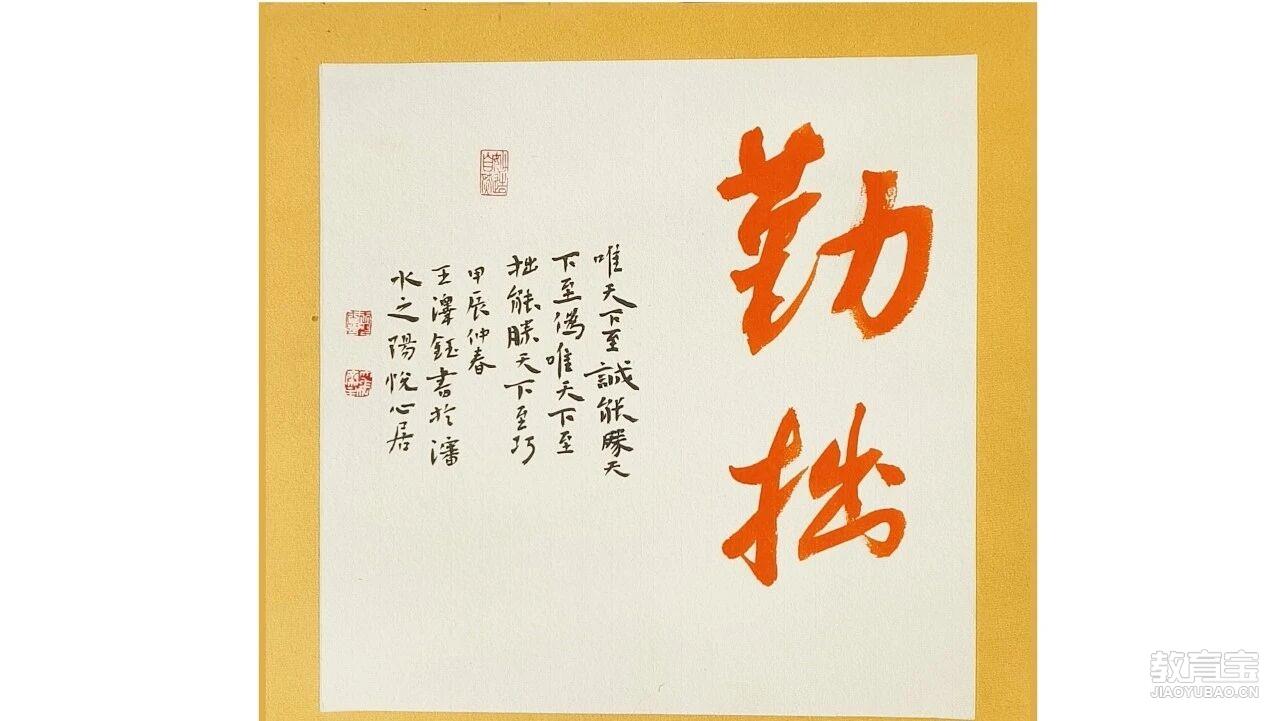 勤拙
唯天下至誠能勝天
下至偽唯天下至
拙能勝天下至巧
甲辰仲春
王澤鈺書於瀋
水之陽悅心居
妙造自然
教育宝
JIAOYUBAO.CN